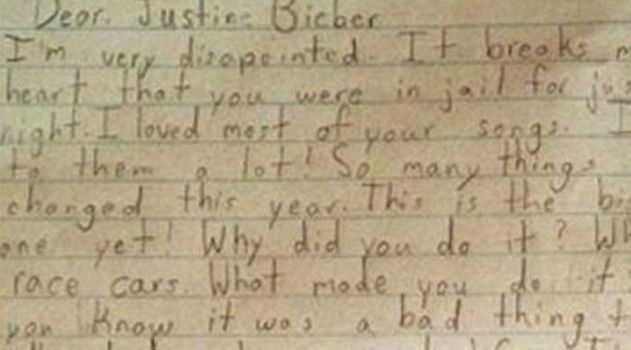 Dear Justine Bieber
I'm very disapointed. It breaks
heart that you were in jail for
night. I loved most of your songs. I
to them a lot! So many things
changed this year. This is the
one yet! Why did you do it?
race cars. What made you do it
you know it was a bad thing